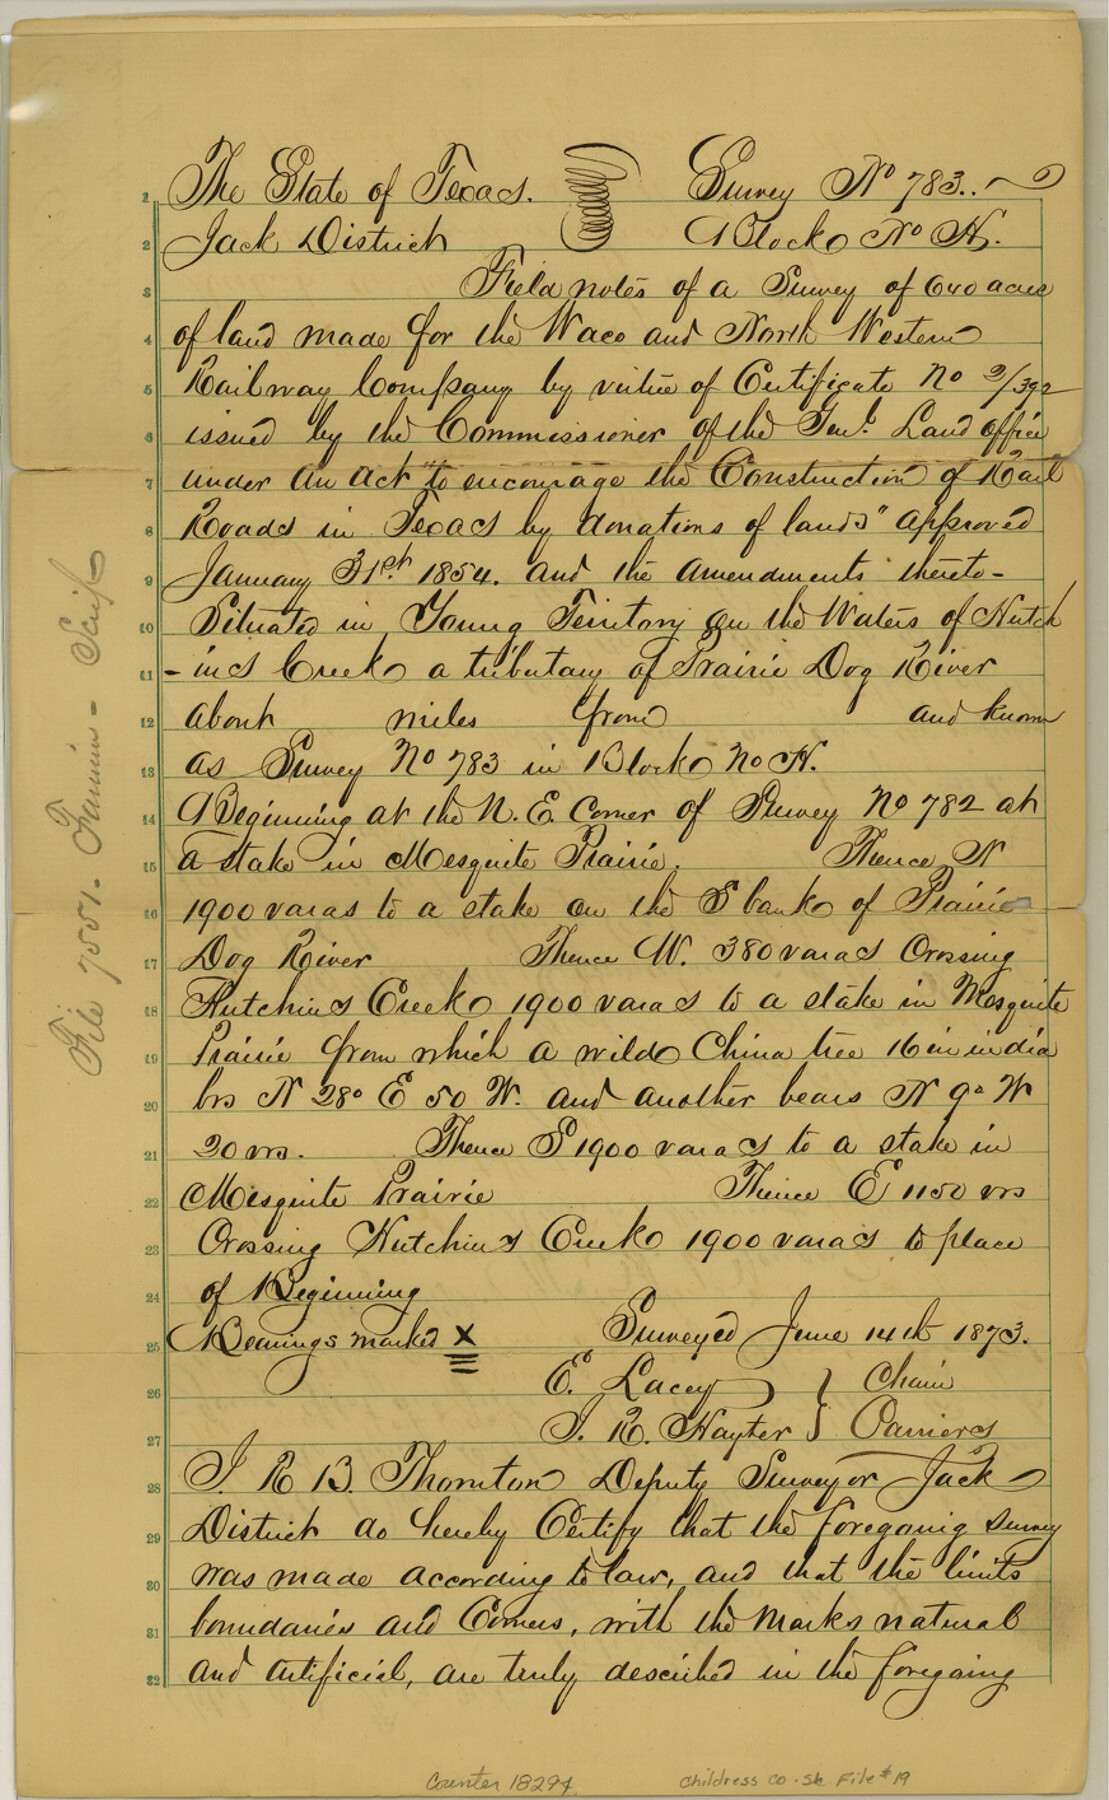 The State of Texas. Survey No 783..
Jack District Block No H.
Field notes of a Survey of 640 acres
of land made for the Waco and North Western
Railway Company by virtue of Certificate No 2/392
issued by the Commissioner of the Genl. Land office
under an act "to encourage the Construction of Rail
Roads in Texas by donations of lands" approved
January 31st. 1854. and the amendments thereto-
Situated in Young Territory on the Waters of Hutch
-ins Creek a tributary of Prairie Dog River
about miles from and known
as Survey No 783 in Block No H.
Beginning at the N. E. Corner of Survey No 782 at
a stake in Mesquite Prairie. Thence N
1900 varas to a stake on the S bank of Prairie
Dog River Thence W. 380 varas Crossing
Hutchins Creek 1900 varas to a stake in Mesquite
Prairie from which a wild China tree 16 in in dia
brs N 28° E 50 W. and another bears N 9° W
20 vrs. Thence S 1900 varas to a stake in
Mesquite Prairie Thence E 1150 vrs
Crossing Hutchins Creek 1900 varas to place
of Beginning
Bearings marked X Surveyed June 14th 1873.
E. Lacey } Chain
J. R. Hayter } Carriers
I. R B. Thornton Deputy Surveyor Jack
District do hereby Certify that the foregoing survey
was made according to law, and that the limits
boundaries and Corners, with the marks natural
and artificial, are truly described in the foregoing
File 7551. Fannin - Scrip
Counter 18294
Childress co. Sk File #19
1
2
3
4
5
6
7
8
9
10
11
12
13
14
15
16
17
18
19
20
21
22
23
24
25
26
27
28
29
30
31
32